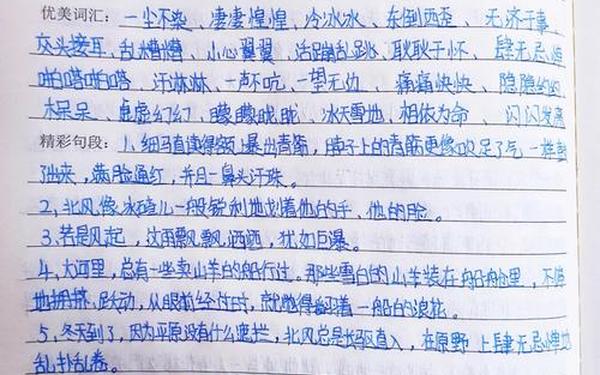 优美词汇：一尘不染、凄凄惶惶、冷冰冰、东倒西歪、无济于事、
交头接耳、乱糟糟、小心翼翼、活蹦乱跳、耿耿于怀、肆无忌惮
啪嗒啪嗒、汗淋淋、一声不吭、一望无边、痛痛快快、隐隐约约
呆呆、虚虚幻幻、朦朦胧胧、冰天雪地、相依为命、闪闪发亮
精彩句段：1、细马直读得额上暴出青筋，脖子上的青筋更像吹足了气一样鼓
了出来，满脸通红，并且一鼻头汗珠。
2、北风像冰碴儿一般锐利地划着他的手、他的脸。
3、若是风起，这雨飘飘洒洒，犹如巨瀑。
4、大河里，总有一些卖山羊的船行过。那些雪白的山羊装在船舱里，不停
地拥挤、跃动，从眼前经过时，就觉得翻着一船的浪花。
5、冬天到了，因为平原没有什么遮拦，北风总是长驱直入，在原野上肆无忌惮地
乱扑乱卷。